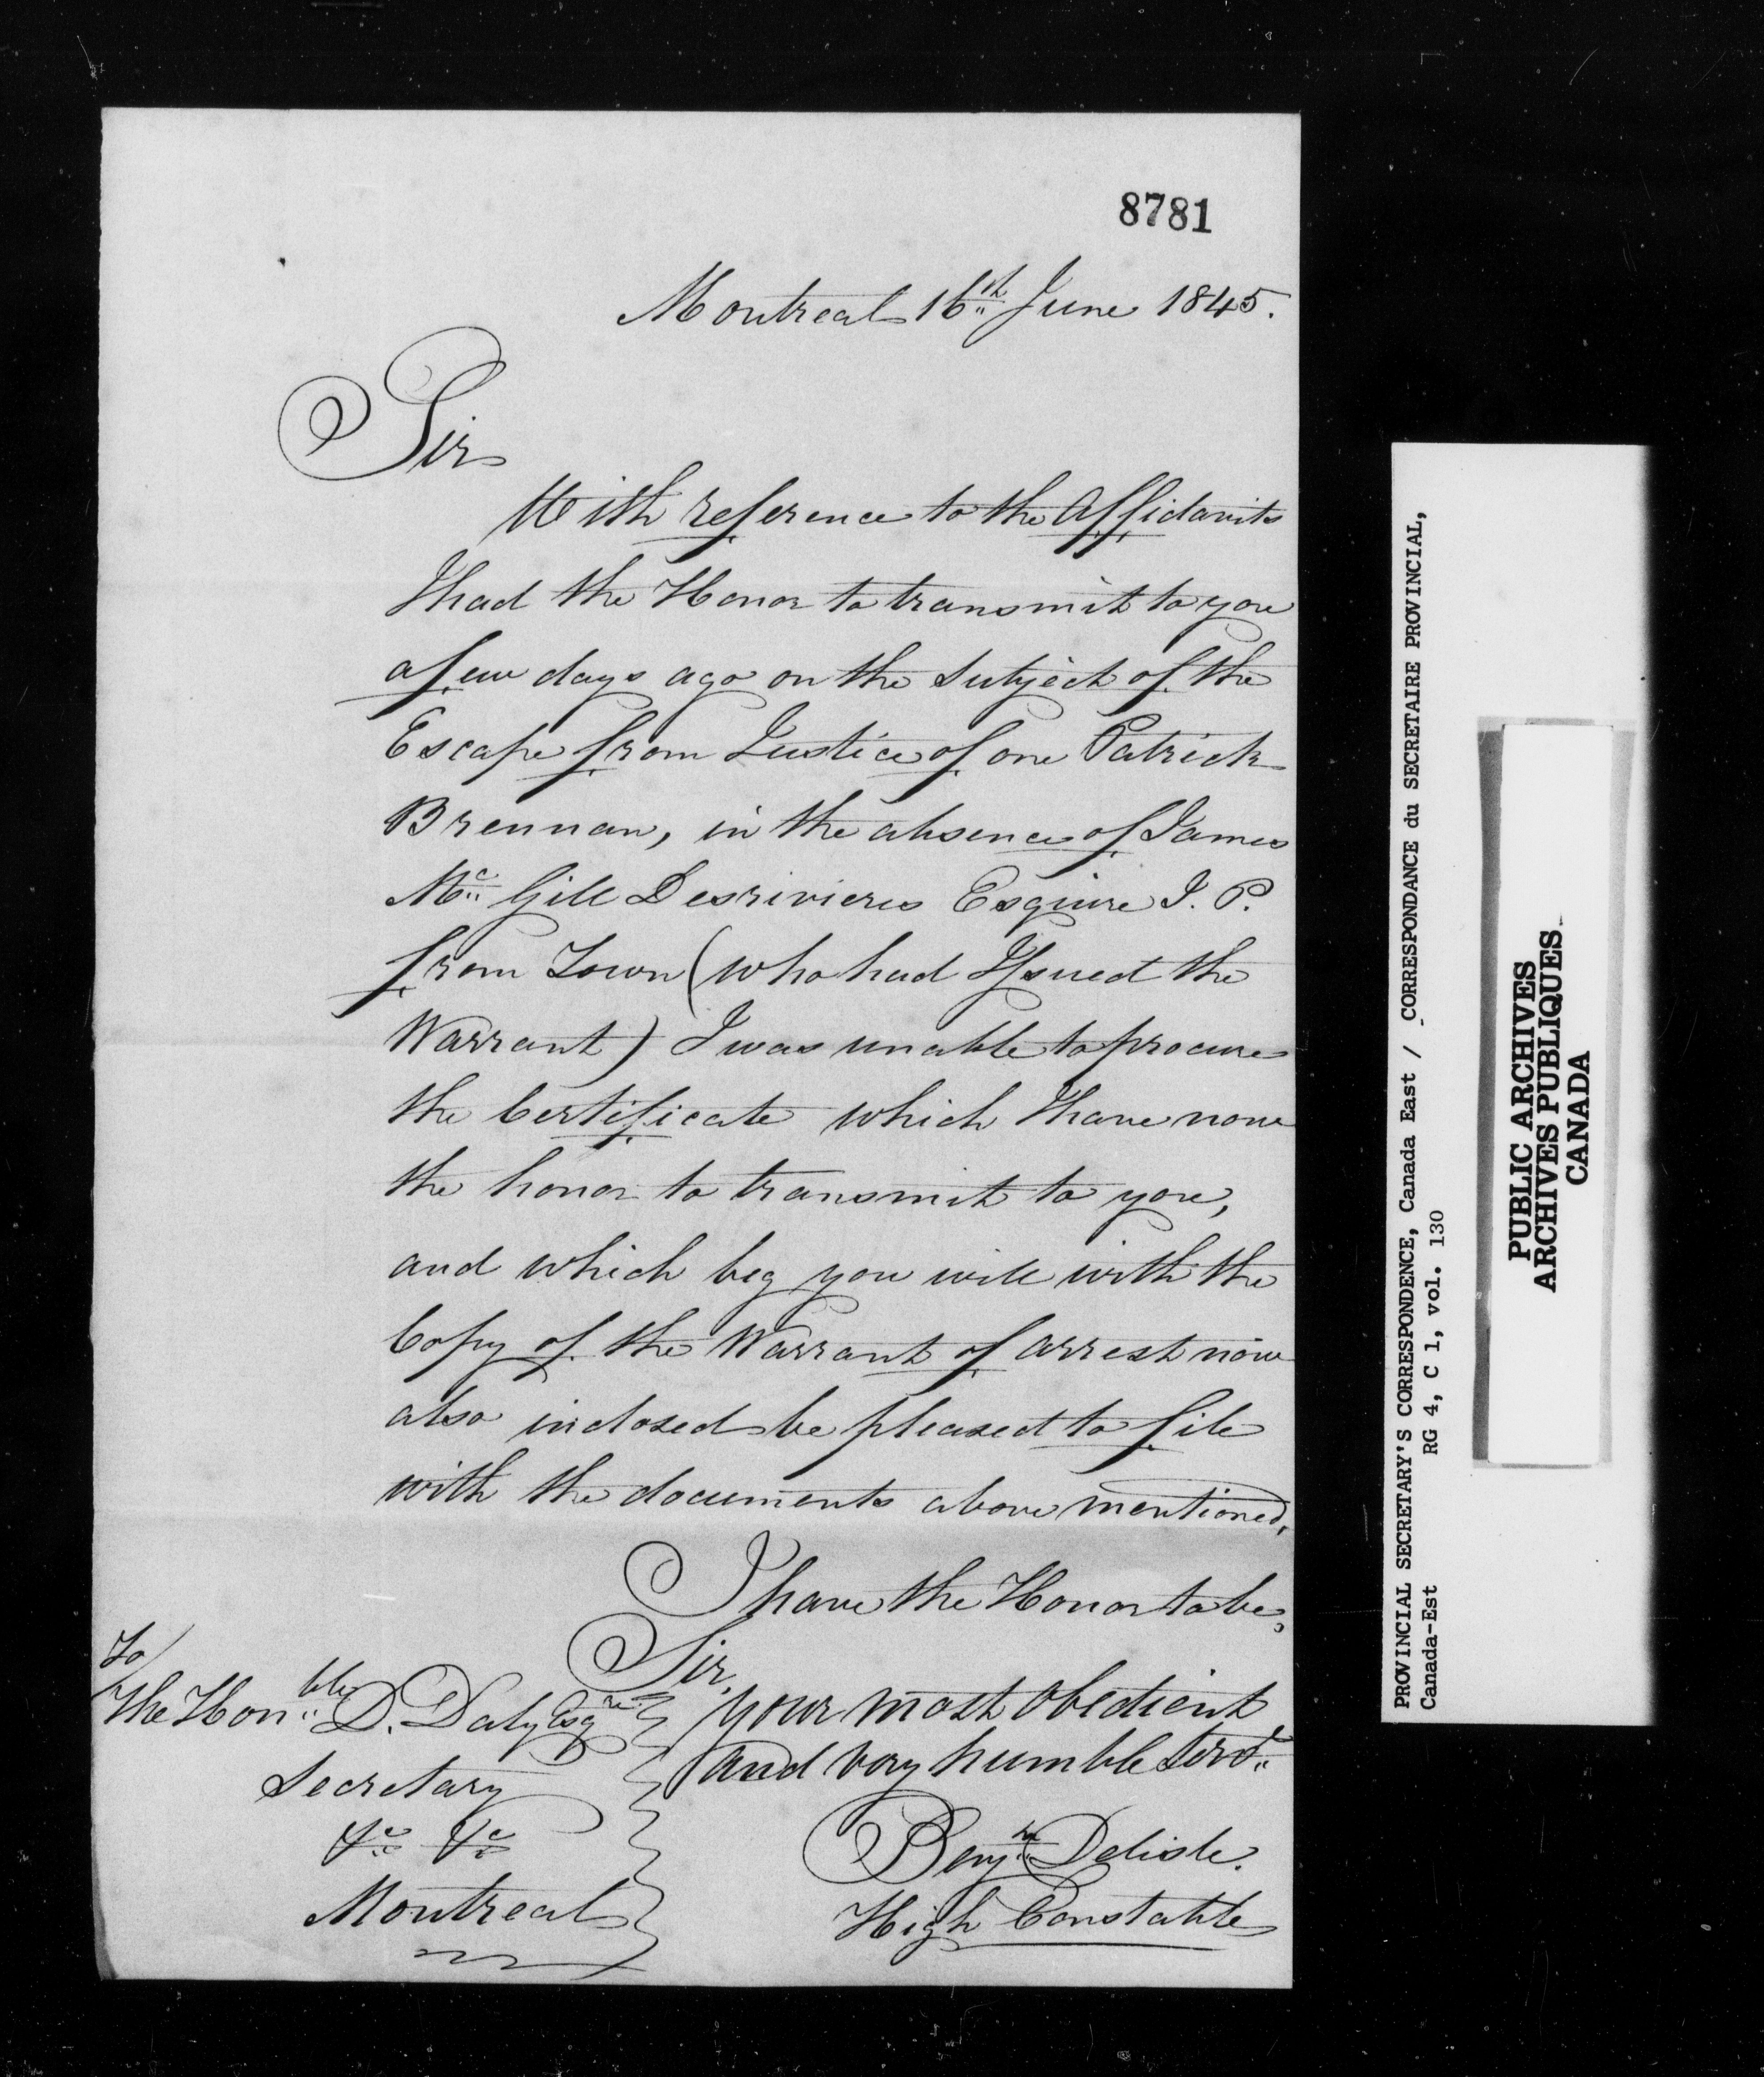 8781
Montreal 16th June 1845.
Sir
With reference to the Affidavits
I had the Honor to transmit to you
a few days ago on the Subject of the
Escape from Justice of one Patrick
Brennan, in the absence of James
Mc Gill Desrivieres Esquire J. P.
from Town (who had Issued the
Warrant) I was unable to procure
the Certificate which I have now
the honor to transmit to you,
and which beg you will with the
Copy of the Warrant of arrest now
also inclosed be pleased to file
with the documents above mentioned,
I have the Honor to be,
Sir,
your most obedient
and very humble Servt
Benjn Delisle.
High Constable
To
The Honble D. Daly Esqre
Secretary
&c &c
Montreal
PROVINCIAL SECRETARY'S CORRESPONDENCE, Canada East / CORRESPONDANCE du SECRETAIRE PROVINCIAL,
Canada-Est RG 4, C 1, vol. 130
PUBLIC ARCHIVES
ARCHIVES PUBLIQUES
CANADA